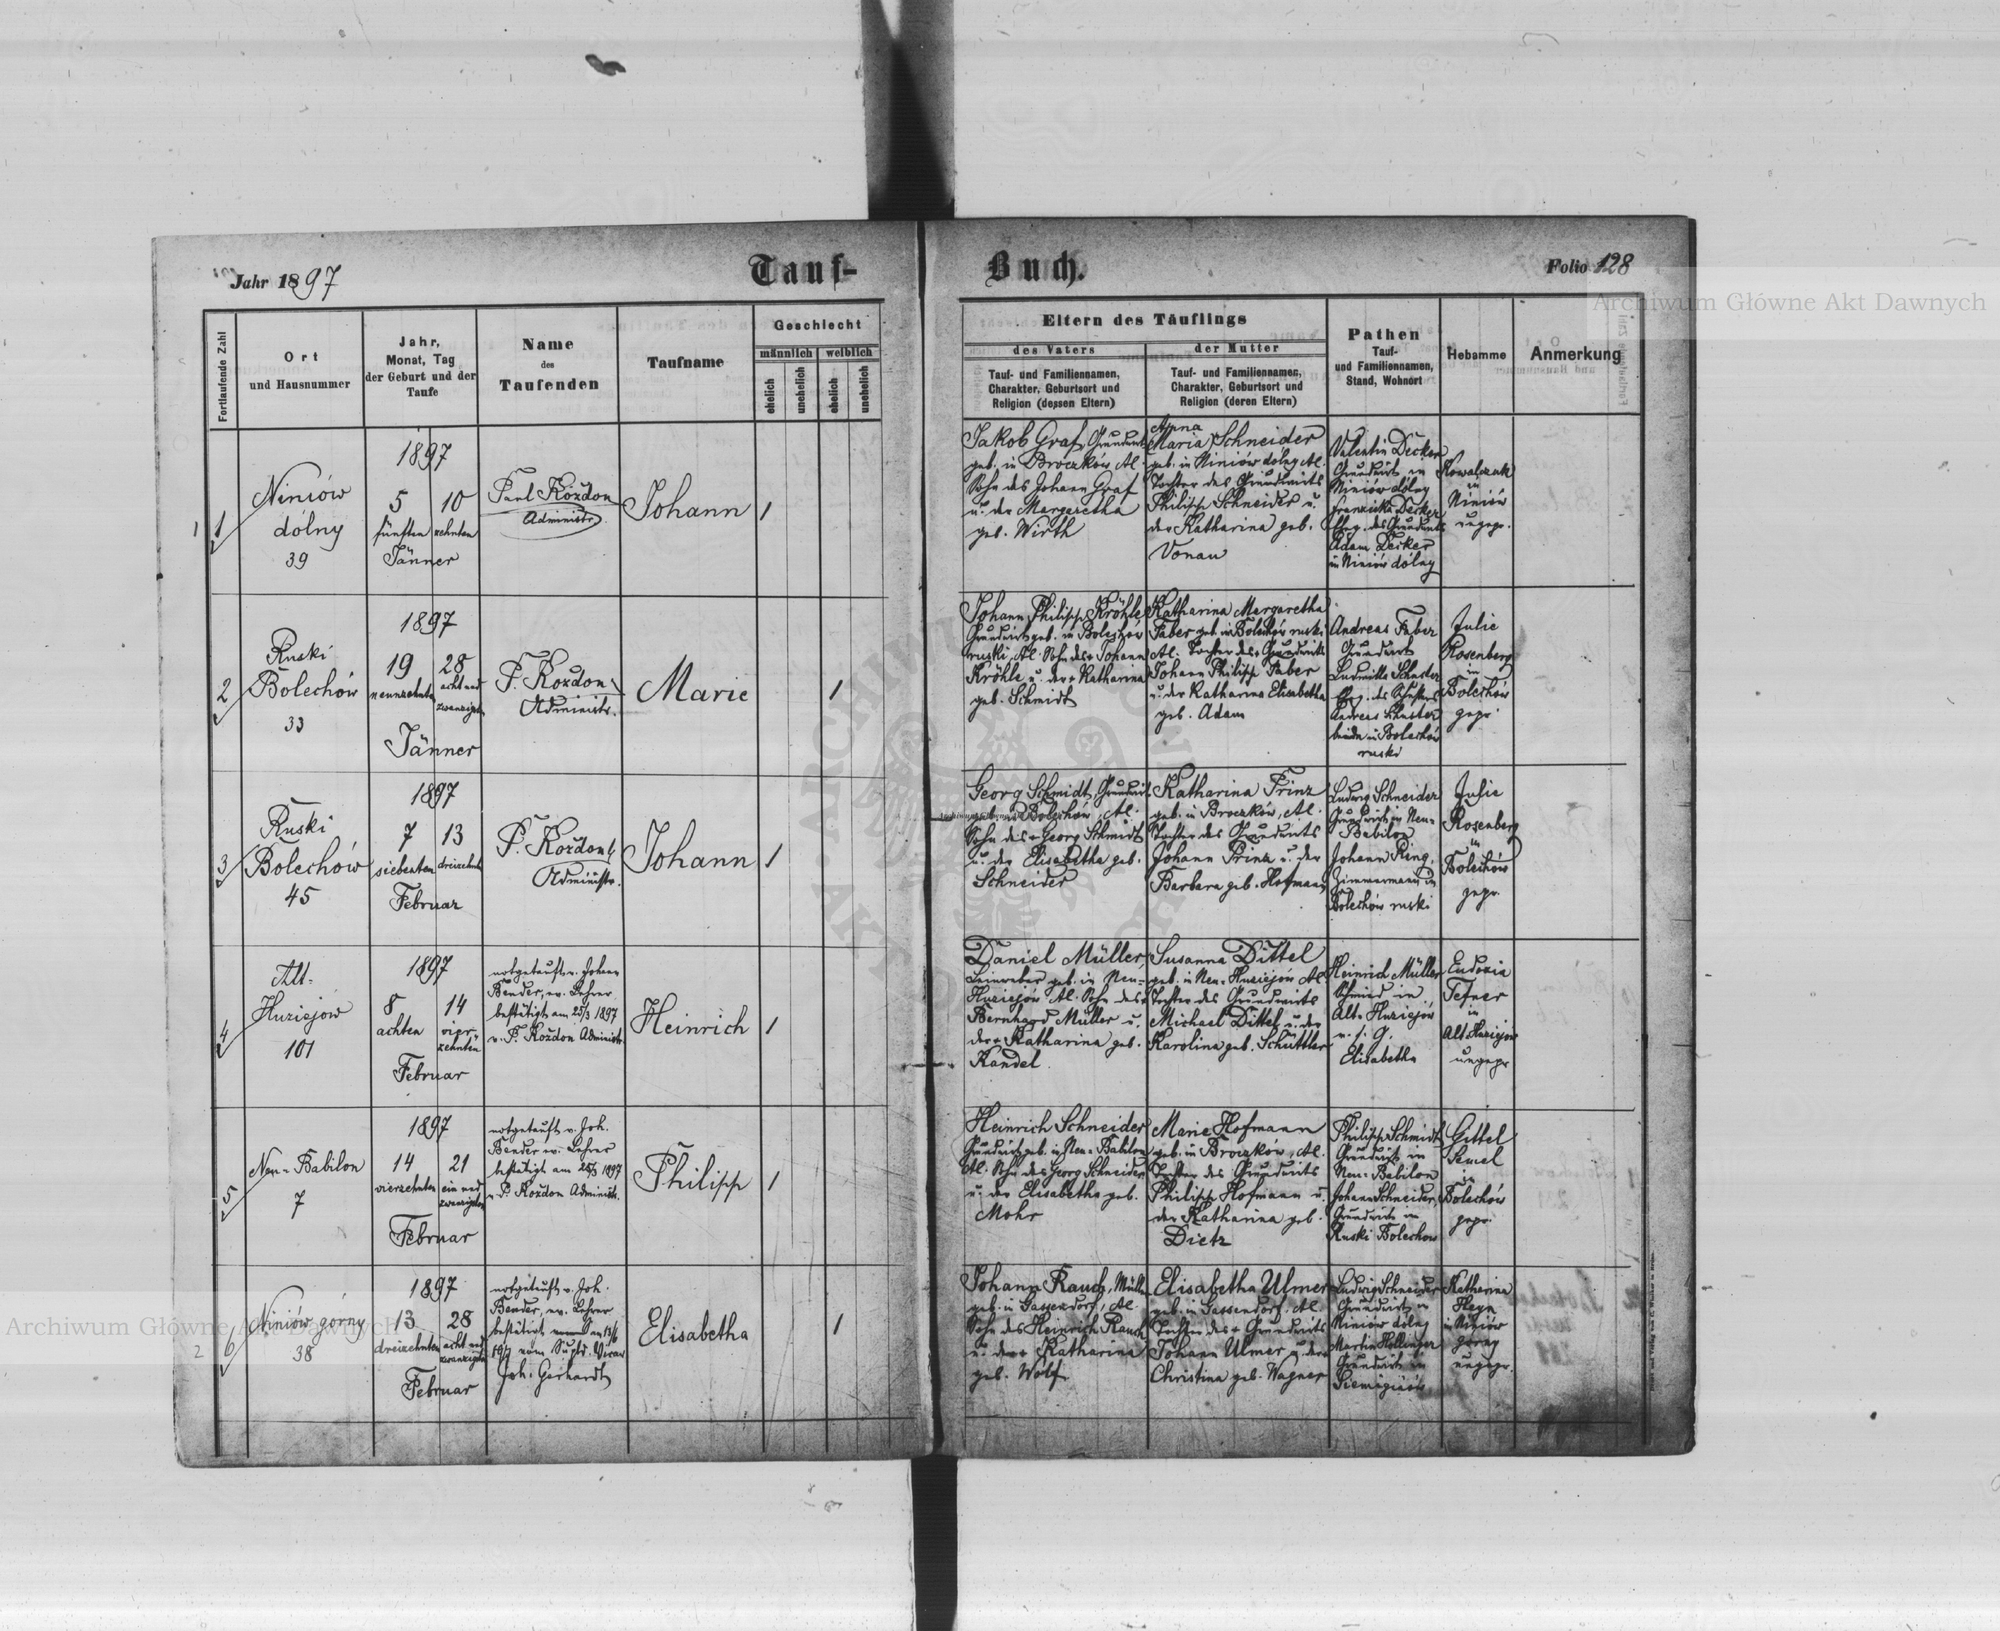 Jahr 1897
Tauf-
Buch.
Folio 128
Archiwum Główne Akt Dawnych
Fortlaufende Zahl
Ort
und Hausnummer
Jahr,
Monat, Tag
der Geburt und der
Taufe
Name
des
Taufenden
Taufname
Geschlecht
männlich
weiblich
ehelich
unehelich
ehelich
unehelich
Eltern des Täuflings
des Vaters
Tauf- und Familiennamen,
Charakter, Geburtsort und
Religion (dessen Eltern)
der Mutter
Tauf- und Familiennamen,
Charakter, Geburtsort und
Religion (deren Eltern)
Pathen
Tauf-
und Familiennamen,
Stand, Wohnort
Hebamme
Anmerkung
1
1
Niniów
dólny
39
1897
5
10
fünften
zehnten
Jänner
Paul Kożdon
Administr.
Johann
1
Jakob Graf, Grundwirt
geb. in Broczków Al.
Sohn des Johann Graf
u. der Margaretha
geb. Wirth
Anna
Maria Schneider
geb. in Niniów dólny Al.
Tochter des Grundwirts
Philipp Schneider u.
der Katharina geb.
Vonau
Valentin Decker
Grundwirt in
Niniów dólny
Franziska Decker
Eheg. des Grundwirts
Adam Decker
in Niniów dólny
Kowalczuk
in
Niniów
ungepr.
2
Ruski
Bolechów
33
1897
19
28
neunzehnten
acht und
zwanzigsten
Jänner
P. Kożdon
Administr.
Marie
1
Johann Philipp Kröhle
Grundwirt geb. in Bolechów
ruski, Al. Sohn des + Johann
Kröhle u. der + Katharina
geb. Schmidt
Katharina Margaretha
Faber geb. in Bolechów ruski
Al. Tochter des + Grundwirts
Johann Philipp Faber
u. der Katharina Elisabetha
geb. Adam
Andreas Faber
Grundwirt
Ludmilla Schuster
Ehg. des Schusters
Andreas Schuster
beide in Bolechów
ruski
Julie
Rosenberg
in
Bolechów
gepr.
3
Ruski
Bolechów
45
1897
7
13
siebenten
dreizehnten
Februar
P. Kożdon
Administr.
Johann
1
Georg Schmidt, Grundwirt
Bolechów, Al.
Sohn des + Georg Schmidt
u. der Elisabetha geb.
Schneider
Katharina Prinz
geb. in Broczków, Al.
Tochter des Grundwirts
Johann Prinz u. der
Barbara geb. Hofmann
Ludwig Schneider
Grundwirt in Neu-
Babilon
Johann Ring,
Zimmermann in
Bolechów ruski
Julie
Rosenberg
in
Bolechów
gepr.
4
Alt-
Huziejow
101
1897
8
14
achten
vier-
zehnten
Februar
notgetauft v. Johann
Bender, ev. Lehrer
bestätigt am 25/3 1897
v. P. Kożdon Administr.
Heinrich
1
Daniel Müller,
Leinweber geb. in Neu-
Huziejów Al. Sohn des +
Bernhard Müller u.
der + Katharina geb.
Kandel
Susanna Dittel
geb. in Neu-Huziejów Al.
Tochter des Grundwirts
Michael Dittel u. der
Karolina geb. Schüttler
Heinrich Müller
Schmied in
Alt-Huziejow
u. s. G.
Elisabetha
Eudoxia
Tefner
in
Alt Huziejow
ungepr
5
Neu-Babilon
7
1897
14
21
vierzehnten
ein und
zwanzigsten
Februar
notgetauft v. Joh.
Bender ev. Lehrer
bestätigt am 25/3 1897
v. P. Kożdon Administr.
Philipp
1
Heinrich Schneider
Grundwirt geb. in Neu-Babilon
Al. Sohn des Georg Schneider
u. der Elisabetha geb.
Mohr
Marie Hofmann
geb. in Broczków, Al.
Tochter des Grundwirts
Philipp Hofmann u.
der Katharina geb.
Dietz
Philipp Schmidt
Grundwirt in
Neu-Babilon
Johann Schneider,
Grundwirt in
Ruski Bolechow
Gittel
Semel
in
Bolechów
gepr.
2
6
Niniów górny
38
1897
13
28
dreizehnten
acht und
zwanzigsten
Februar
notgetauft v. Joh.
Bender, ev. Lehrer
bestätigt
vom Suptd. Vicar
Joh. Gerhardt
Elisabetha
1
Johann Rauch, Müller
geb. in Gassendorf, Al.
Sohn des Heinrich Rauch
u. der + Katharina
geb. Wolf
Elisabetha Ulmer
geb. in Gassendorf, Al.
Tochter des + Grundwirts
Johann Ulmer u. der +
Christina geb. Wagner
Ludwig Schneider
Grundwirt in
Niniów dólny
Martin Hollinger
Grundwirt in
Katharina
Heyn
in Niniów
górny
ungepr.
Archiwum Główne Akt Dawnych